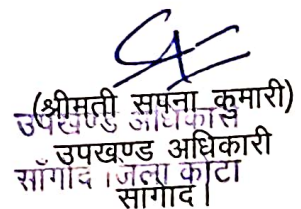 (श्रीमती सपना कुमारी)
उपखण्ड अधिकारी
उपखण्ड अधिकारी
सांगोद जिला कोटा
सांगोद